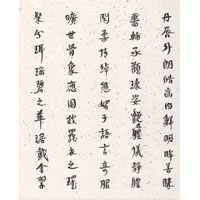 丹脣外朗皓齒内鮮明眸善睞
靨輔承權瓌姿艷逸儀靜體
閑柔情綽態媚于語言奇服
曠世骨象應圖披羅衣之璀
粲兮珥瑤碧之華琚戴金翠